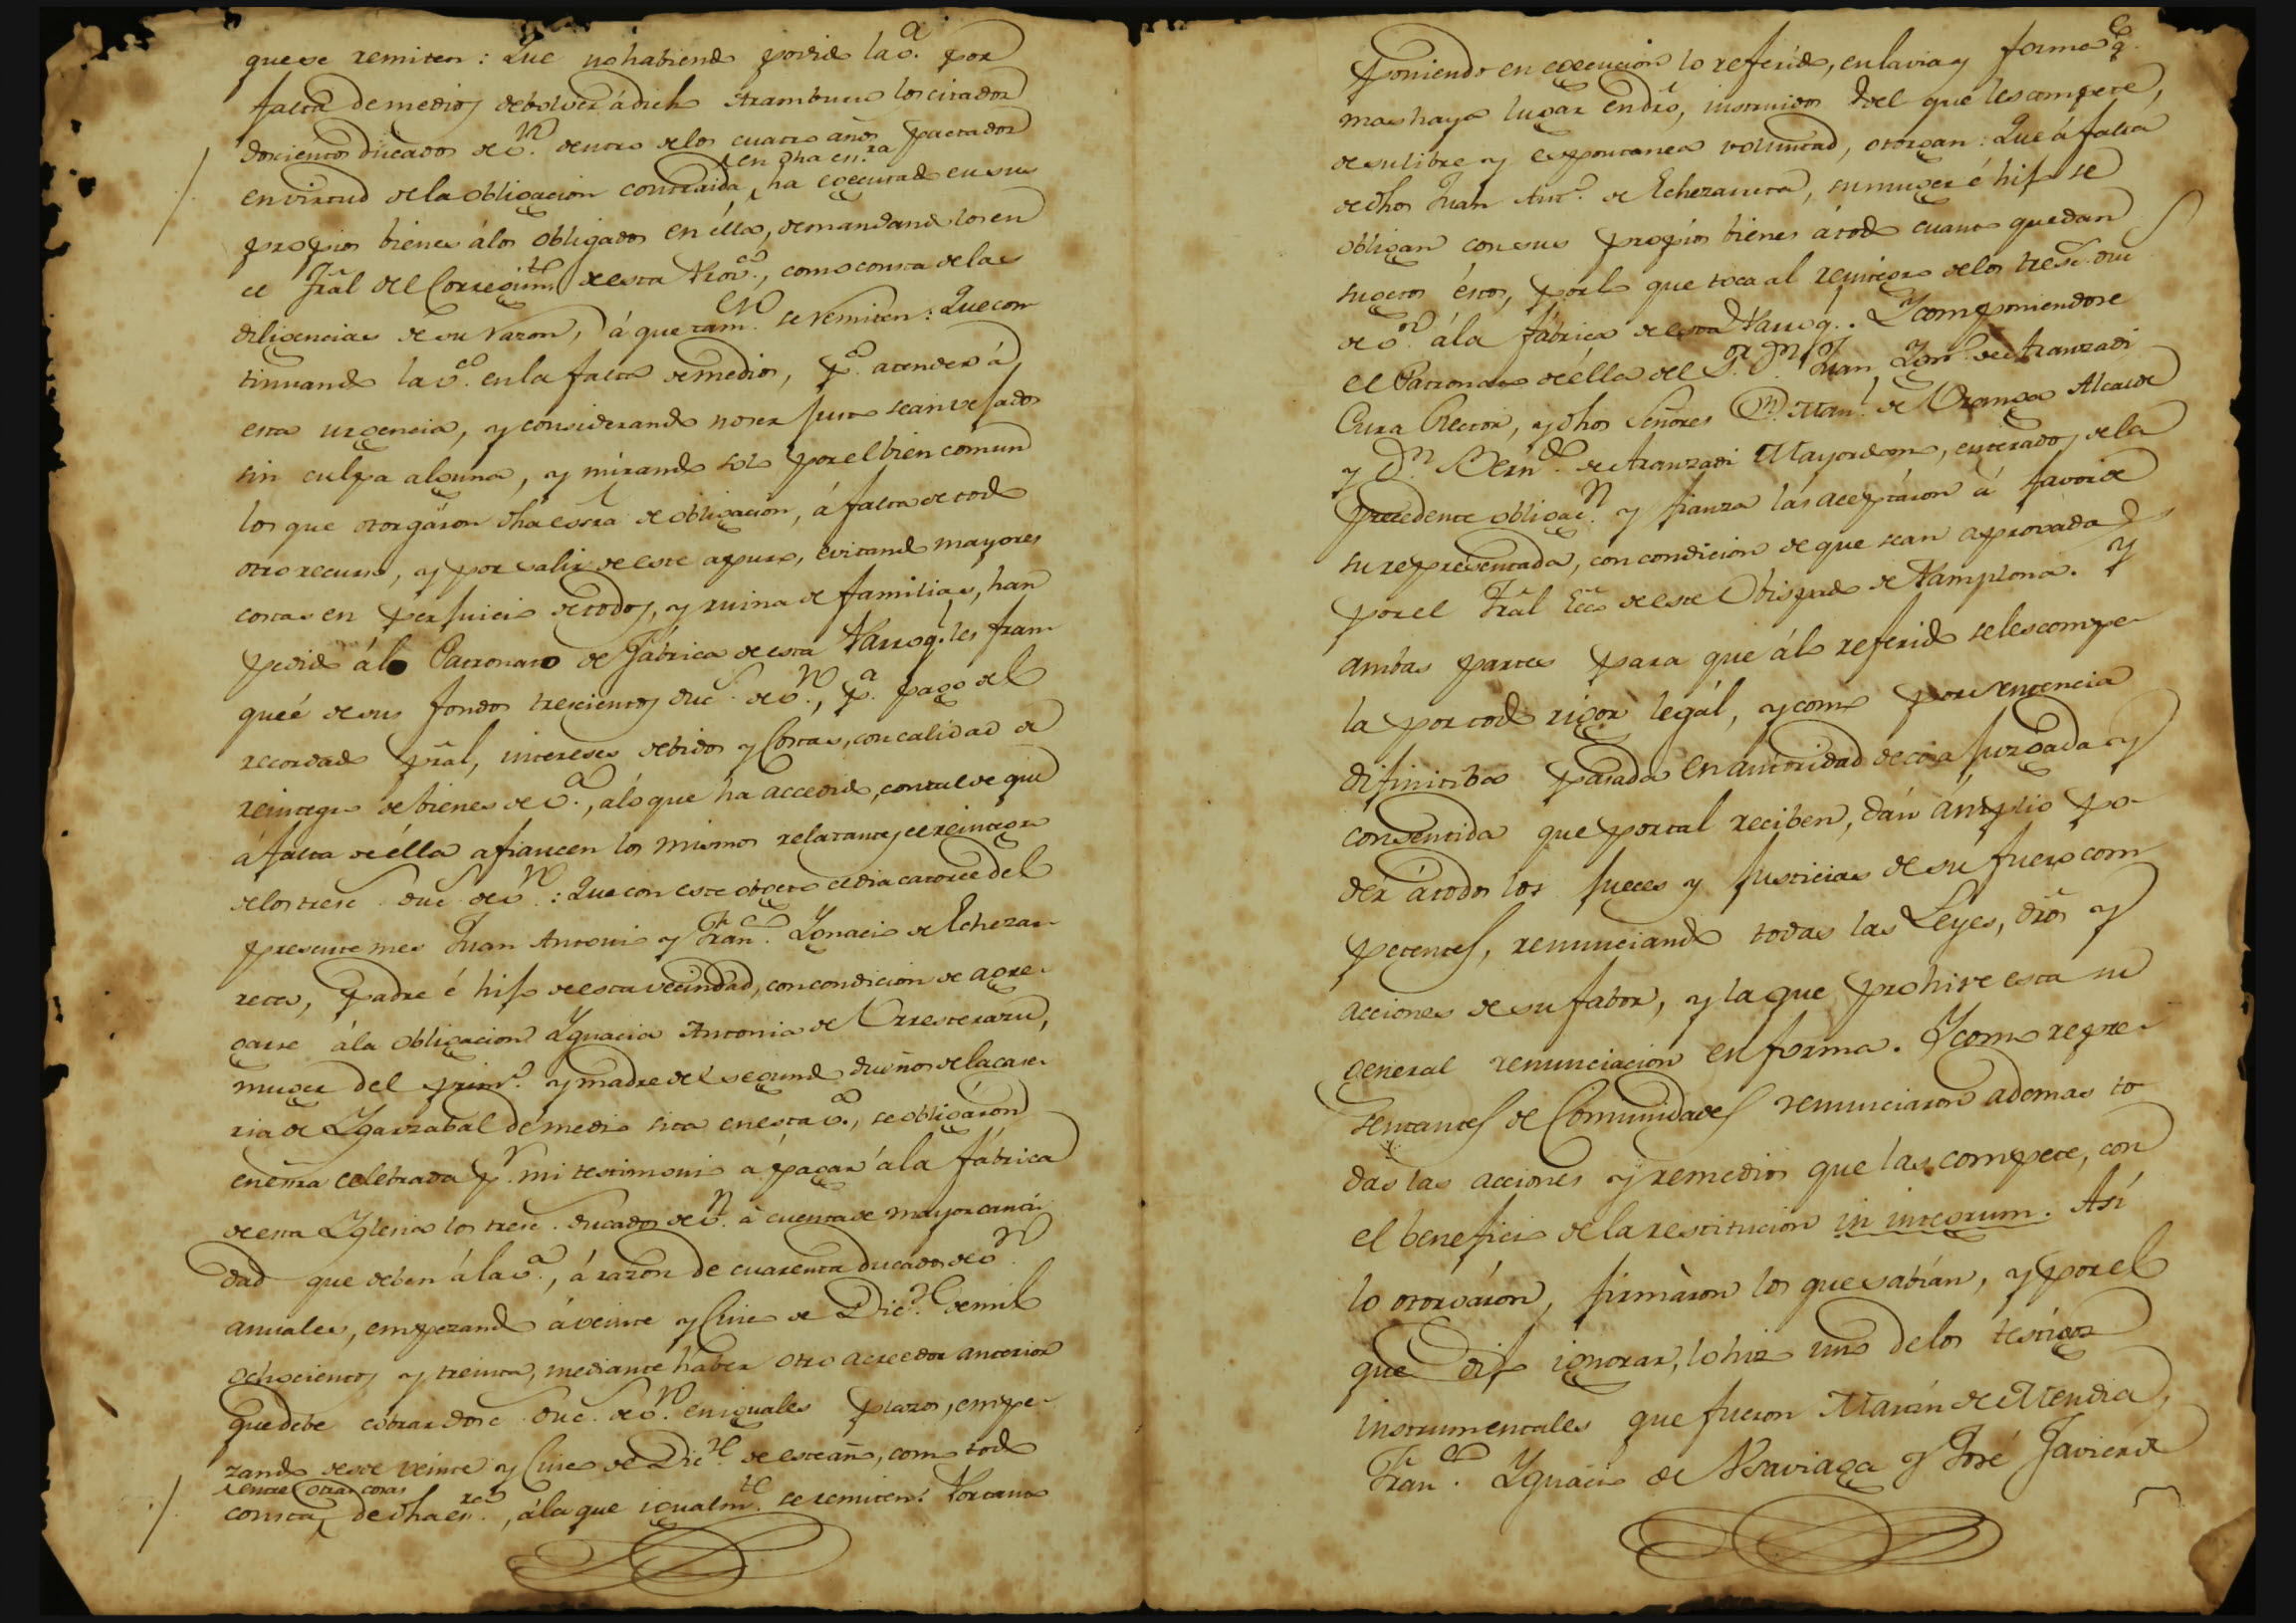 que se remiten: Que no habiendo podido la v.ª por
falta de medios debolver á dicho Aramburu los citados
doscientos ducados de v.n dentro de los cuatro años pactados
en dha en.ra
en virtud de la obligacion contraida, ha egecutado en sus
propios bienes á los obligados en élla, demandandolos en
el Trãl del Corregim.to de esta Prov.a, como consta de las
diligencias de su razon, á que tam.n se remiten: Que con
tinuando la v.ª en la falta de medios, p.ª atender á
esta urgencia, y considerando no ser justo sean vejados
sin culpa alguna, y mirando solo por el bien comun
los que otorgáron dha essra de obligacion, á falta de todo
otro recurso, y por salir de este apuro, evitando mayores
costas en perjuicio de todos, y ruina de familias, han
pedido álo Patronato de Fábrica de esta Parroq.l les fran
queé de sus fondos trescientos duc.s de v.n, p.ª pago del
recordado prãl, intereses debidos y Costas, con calidad de
reintegro de bienes de v.ª, á lo que ha accedido, con tal de que
á falta de élla afiancen los mismos relatantes el reintegro
de los tresc.s duc.s de v.n: Que con este objeto el dia catorce del
presente mes Juan Antonio y Fran.co Ygnacio de Echezar
reta, padre é hijo de esta vecindad, con condicion de agre
garse á la obligacion Ygnacia Antonia de Urresterazu,
muger del prim.o y madre del segundo dueños de la case
ria de Ygarzabal de medio sita en esta v.ª, se obligáron
en essra celebrada p.r mi testimonio a pagar á la fábrica
de esta Yglesia los tresc.s ducados de v.n á cuenta de mayor canti
dad que deben á la v.ª, á razon de cuarenta ducados de v.n
anuales, empezando á veinte y Cinco de Dic.re de mil
ochocientos y treinta, mediante haber otro acreedor anterior
que debe cobrar dosc.s duc.s de v.n en iguales plazos, empe
zando desde veinte y Cinco de Dic.re de este año, como todo
entre otras cosas
consta de dha es.ra, á la que igualm.te se remiten: Por tanto
Poniendo en egecucion lo referido, en la via y forma q.e
mas haya lugar en dro, instruidos del que les compete,
de su libre y espontanea voluntad, otorgan: Que á falta
de dhos Juan Ant.o de Echezarreta, su muger é hijo se
obligan con sus propios bienes á todo cuanto quedan
sugetos éstos, por lo que toca al reintegro de los tresc.s duc.s
de v.n á la fábrica de esta Parroq.l. Y componiendose
el Patronato de élla del S.or D.n Juan Ygn.o de Aranzadi
Cura Rector, y dhos Señores D.n Man.l de Uranga Alcalde
y D.n Bern.do de Aranzadi Mayordomo, enterados de la
precedente obligac.n y fianza las aceptáron á favor de
su representada, con condicion de que sean aprovadas
por el Trãl Ecco de este Obispado de Pamplona. Y
ambas partes para que á lo referido se les compe
la por todo rigor legál, y como por sentencia
difinitiba pasada en autoridad de cosa juzgada y
consentida que por tal reciben, dán ámplio po
der á todos los Jueces y Justicias de su fuero com
petentes, renunciando todas las Leyes, dros y
acciones de su fabor, y la que prohive esta su
general renunciacion en forma. Y como repre
sentantes de Comunidades renunciaron ademas to
das las acciones y remedios que las compete, con
el beneficio de la restitucion in integrum. Así
lo otorgáron, firmáron los que sabían, y por el
que dijo ignorar, lo hizo uno de los testigos
instrumentales que fueron Martin de Mendia,
Fran.co Ygnacio de Usaviaga y José Javier de